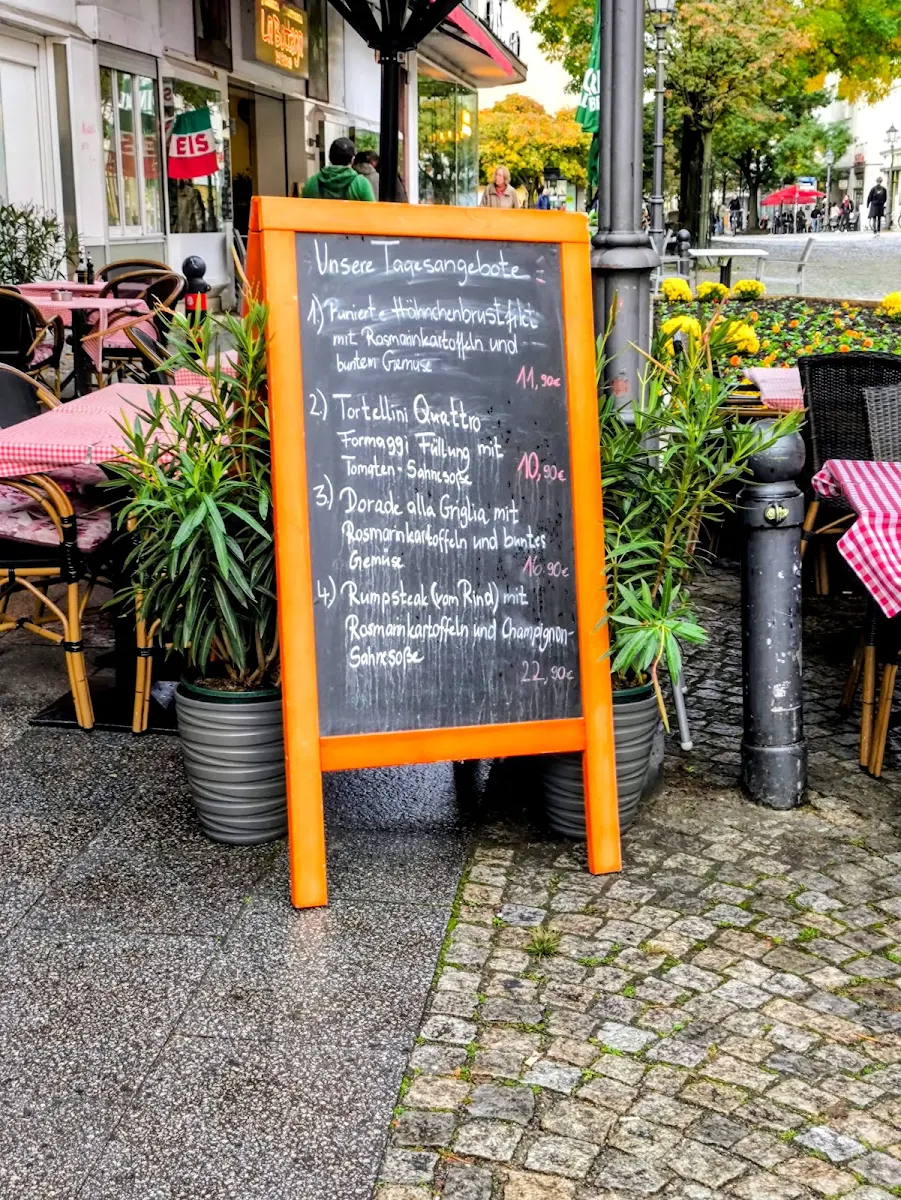 La Bottega
EIS
Unsere Tagesangebote :
1) Panierte Hähnchenbrustfilet
mit Rosmarinkartoffeln und
buntem Gemüse
11,90€
2) Tortellini Quattro
Formaggi Füllung mit
Tomaten-Sahnesoße
10,90€
3) Dorade alla Griglia mit
Rosmarinkartoffeln und buntes
Gemüse
16.90€
4) Rumpsteak (vom Rind) mit
Rosmarinkartoffeln und Champignon-
Sahnesoße
22,90€